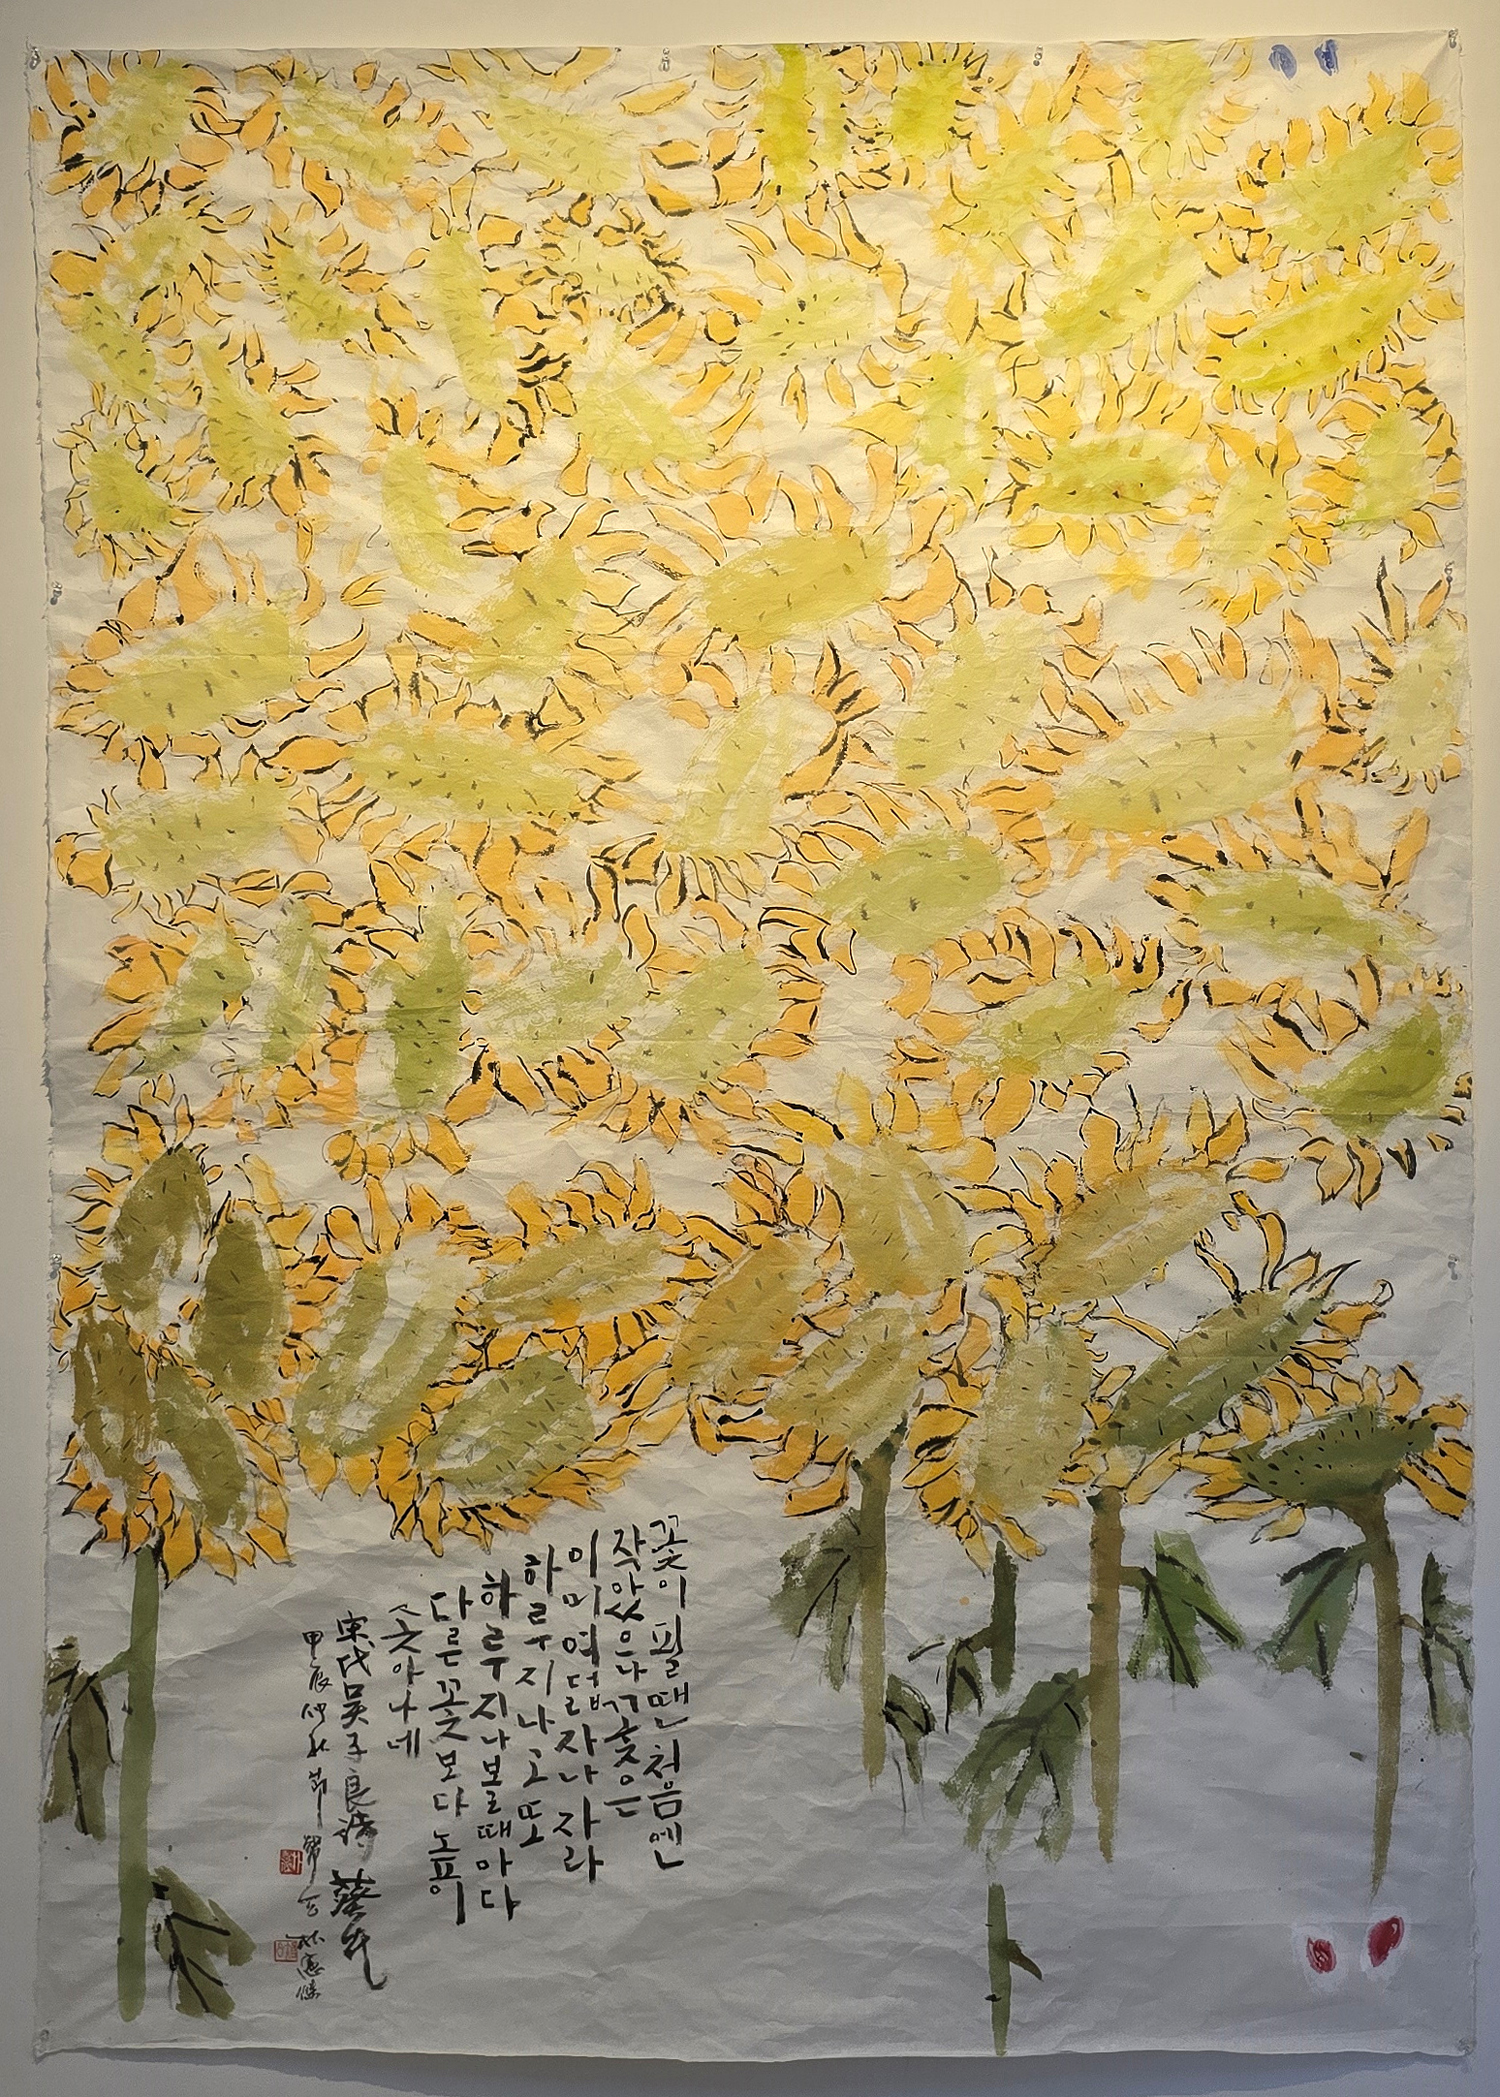 꽃이 필 땐 처음엔
작았으나 꽃은
이미 여덟 자나 자라
하루 지나고 또
하루 지나 볼 때마다
다른 꽃보다 높이
솟아나네
宋代吴子良詩 葵花
甲辰仲秋節